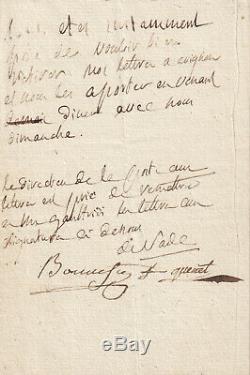 et instamment
prié de vouloir bien
retirer nos lettres a avignon
et nous les aporter en venant
diner avec nous
dimanche.
Le directeur de la poste aux
lettres est prié de remettre
a Mr gaufridi les lettres aux
signatures ci dessous
de Sade
quenet